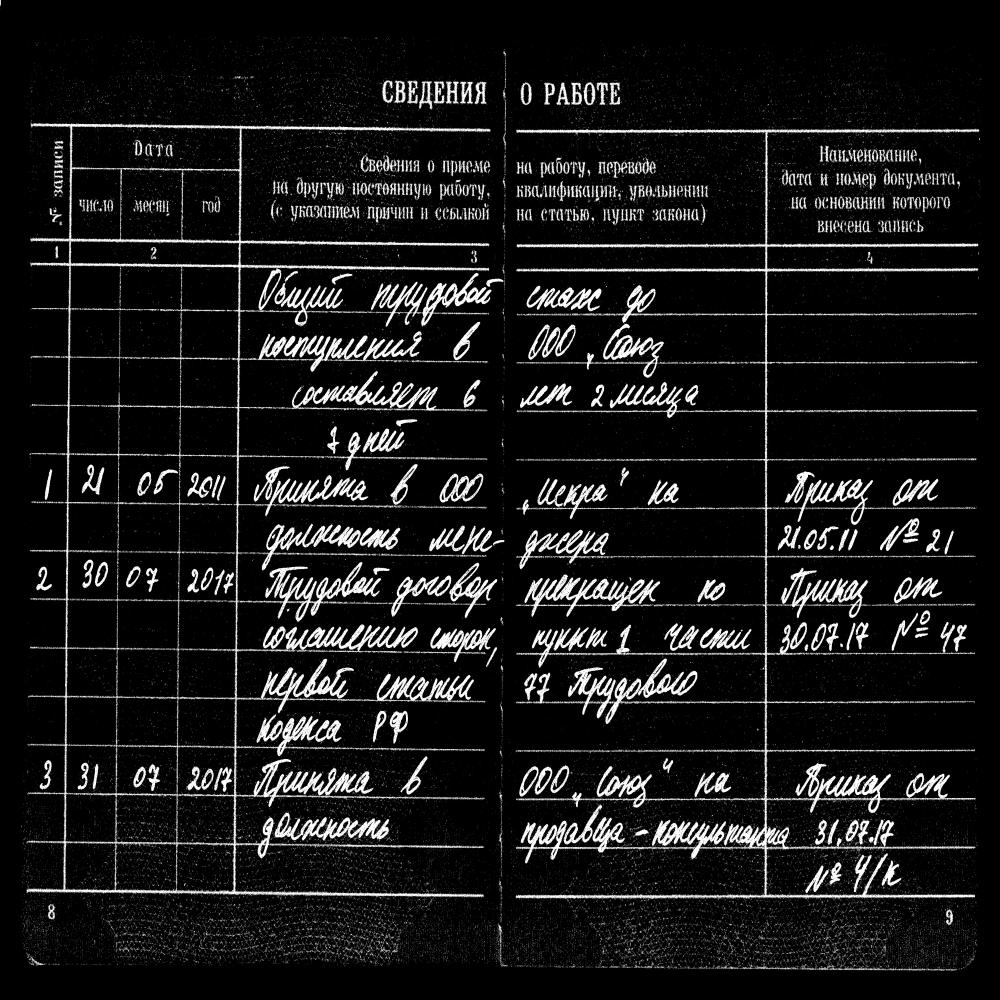 СВЕДЕНИЯ О РАБОТЕ
№ записи
Дата
число месяц год
Сведения о приеме на работу, переводе
на другую постоянную работу, квалификации, увольнении
(с указанием причин и ссылкой на статью, пункт закона)
Наименование,
дата и номер документа,
на основании которого
внесена запись
1 2 3 4
Общий трудовой стаж до
поступления в ООО „Союз
составляет 6 лет 2 месяца
7 дней
1 21 05 2011 Принята в ООО „Искра" на Приказ от
должность мене- джера 21.05.11 № 21
2 30 07 2017 Трудовой договор прекращен по Приказ от
соглашению сторон, пункт 1 части 30.07.17 № 47
первой статьи 77 Трудового
кодекса РФ
3 31 07 2017 Принята в ООО „Союз" на Приказ от
должность продавца - консультанта 31.07.17
№ 4/к
8 9